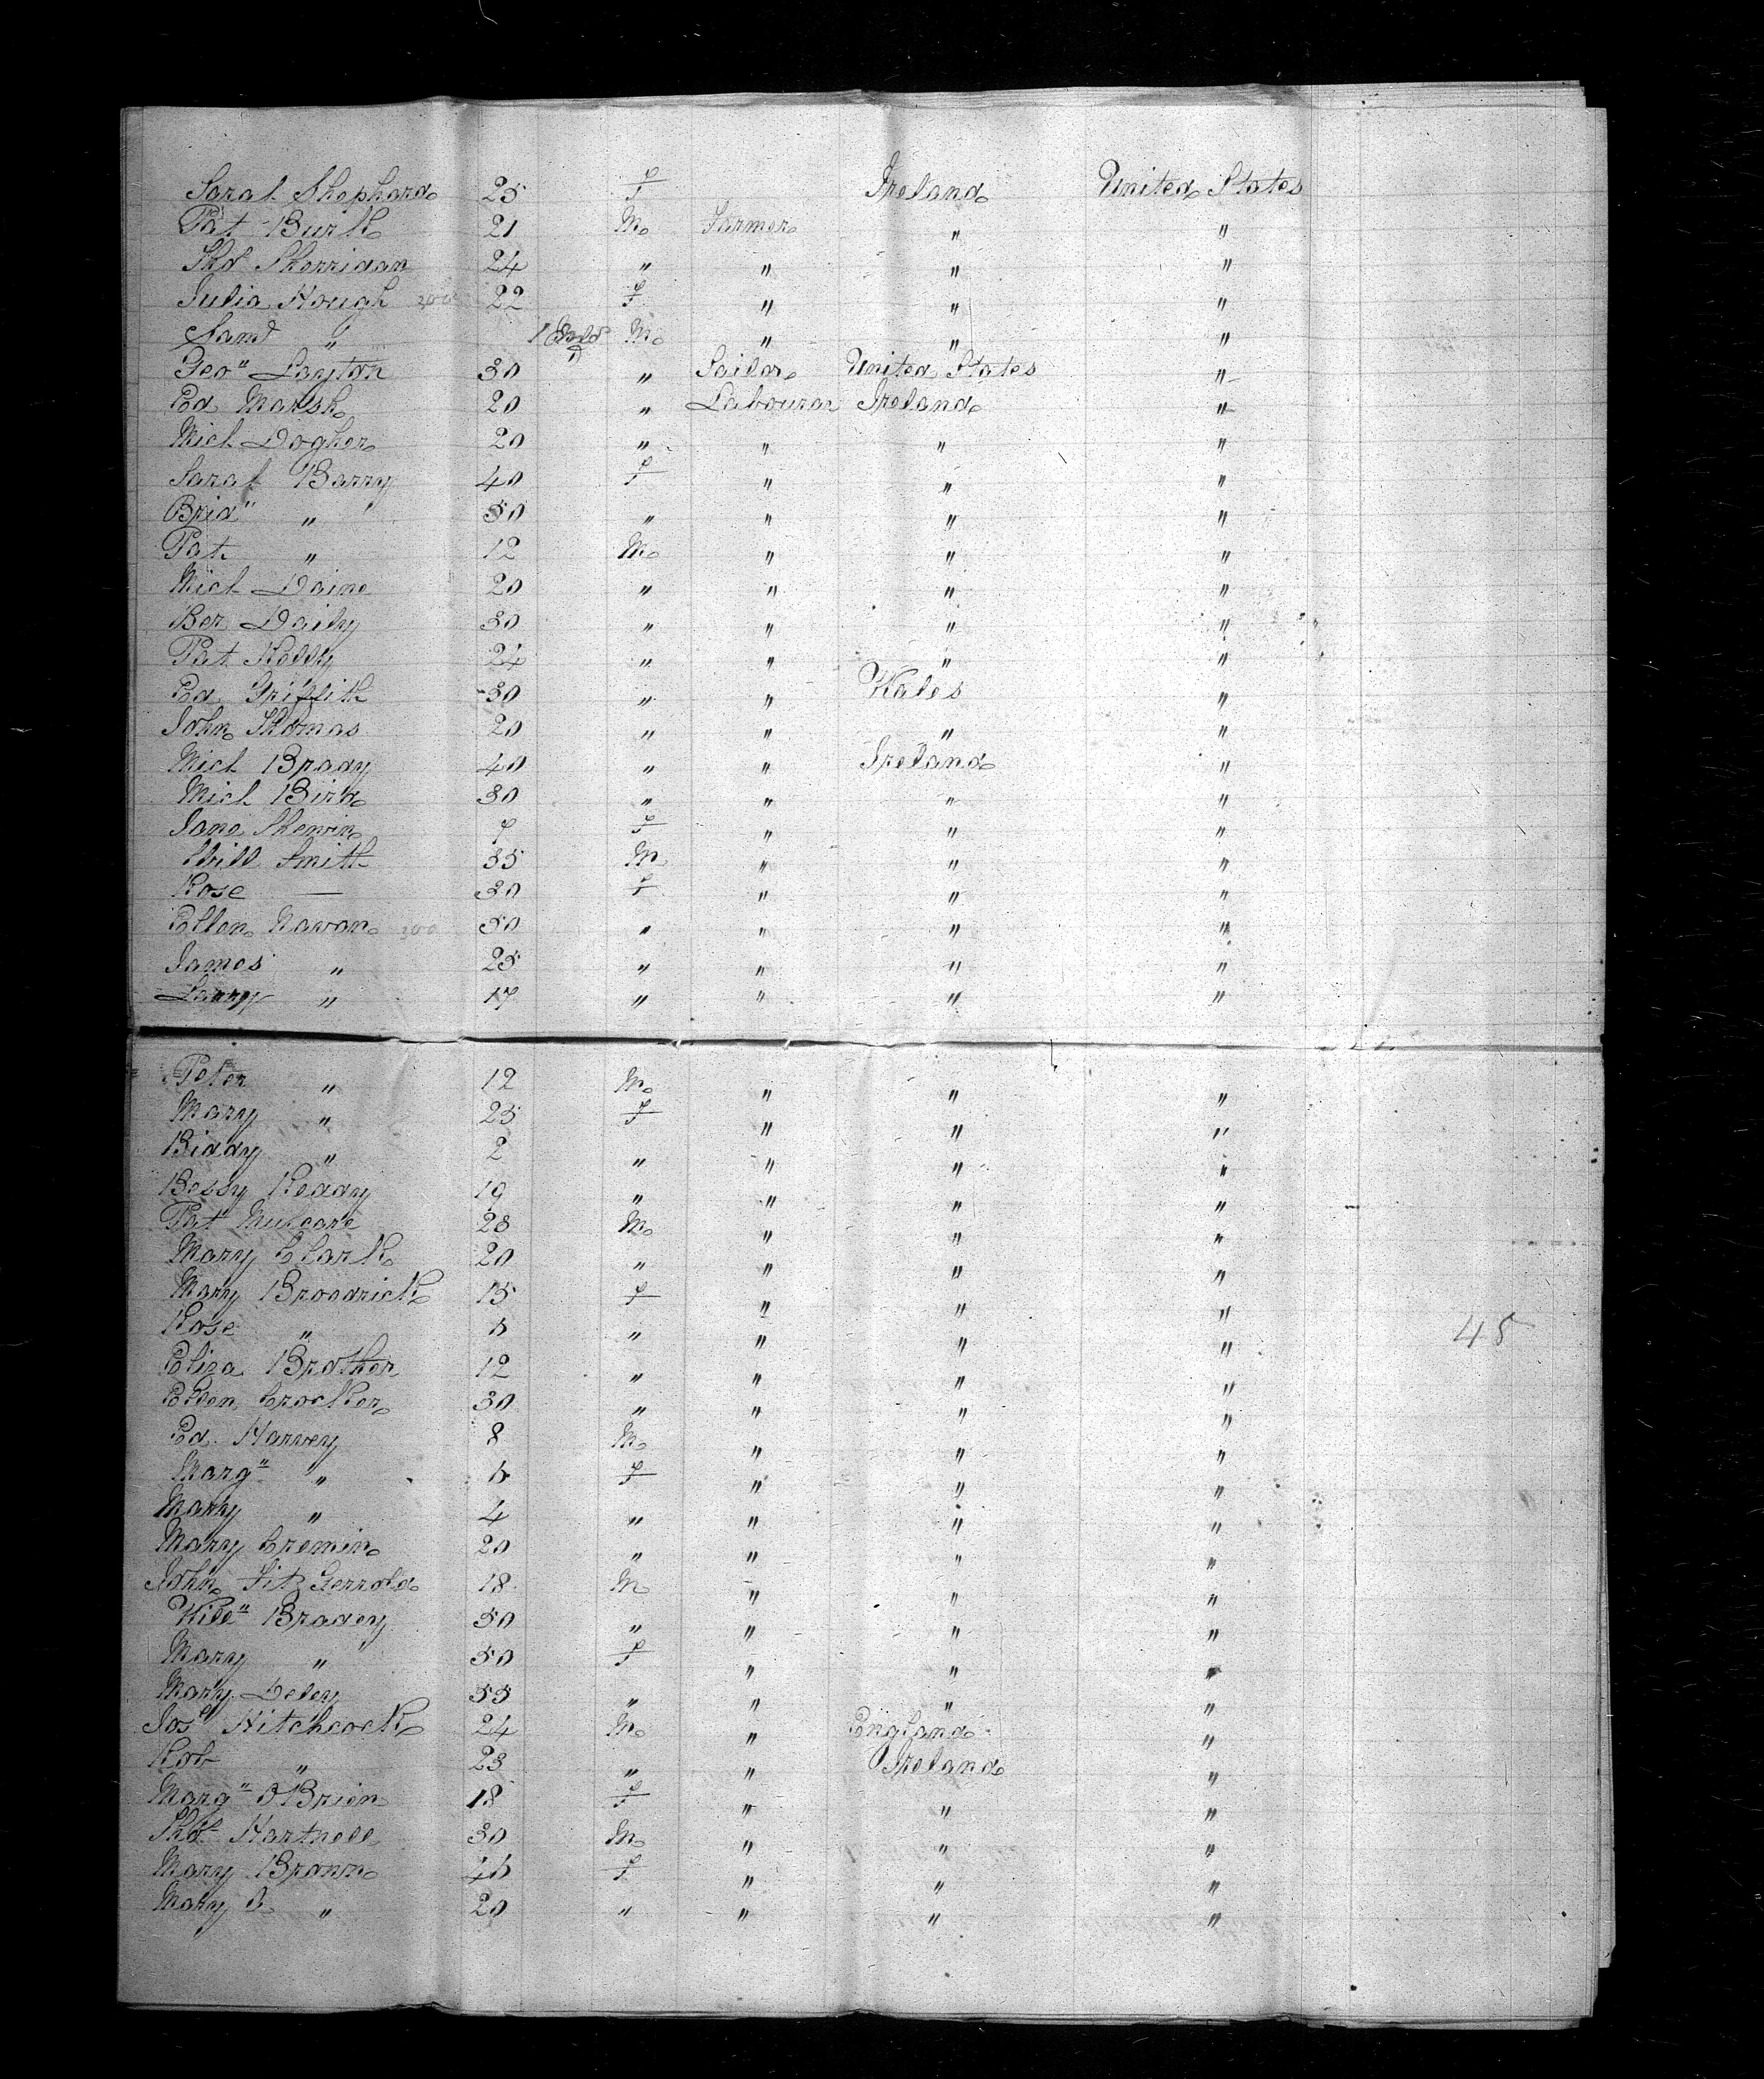 Sarah Shephard 25 F Ireland United States
Pat Burk 21 M Farmer " "
Thos Sherridan 24 " " " "
Julia Hough 22 F " " "
Saml " M " " "
Geo" Layton 30 " Sailor United States "
Ed Marsh 20 " Labourer Ireland "
Mich Dogher 20 " " " "
Sarah Barry 40 F " " "
Brid" " 50 " " " "
Pat " 12 M " " "
Mich Daine 20 " " " "
Ber Daily 30 " " " "
Pat Kelly 24 " " " "
Ed Griffith 30 " " Wales "
John Thomas 20 " " " "
Mich Brady 40 " " Ireland "
Mich Bird 30 " " " "
Jane Sherwin 7 F " " "
Will Smith 35 M " " "
Rose — 30 F " " "
Ellen Navan 200 50 " " " "
James " 25 " " " "
Larry " 17 " " " "
Peter " 12 M " " "
Mary " 25 F " " "
Biddy " 2 " " " "
Bessy Keddy 19 " " " "
Pat Mulcare 28 M " " "
Mary Clark 20 " " " "
Mary Broodrick 15 F " " "
Rose " 5 " " " "
Eliza Brother 12 " " " "
Ellen Crocker 30 " " " "
45
Ed Harvey 8 M " " "
Marg" " 5 F " " "
Mary " 4 " " " "
Mary Cremin 20 " " " "
John Fitz Gerrold 18 M " " "
Will" Bradey 50 " " " "
Mary " 50 F " " "
Mary Deley 55 " " " "
Josh Hitchcock 24 M " England "
Rob " 23 " " Ireland "
Marg" OBrien 18 F " " "
Thos Hartnell 30 M " " "
Mary Brown 45 F " " "
Mary O " 20 " " " "